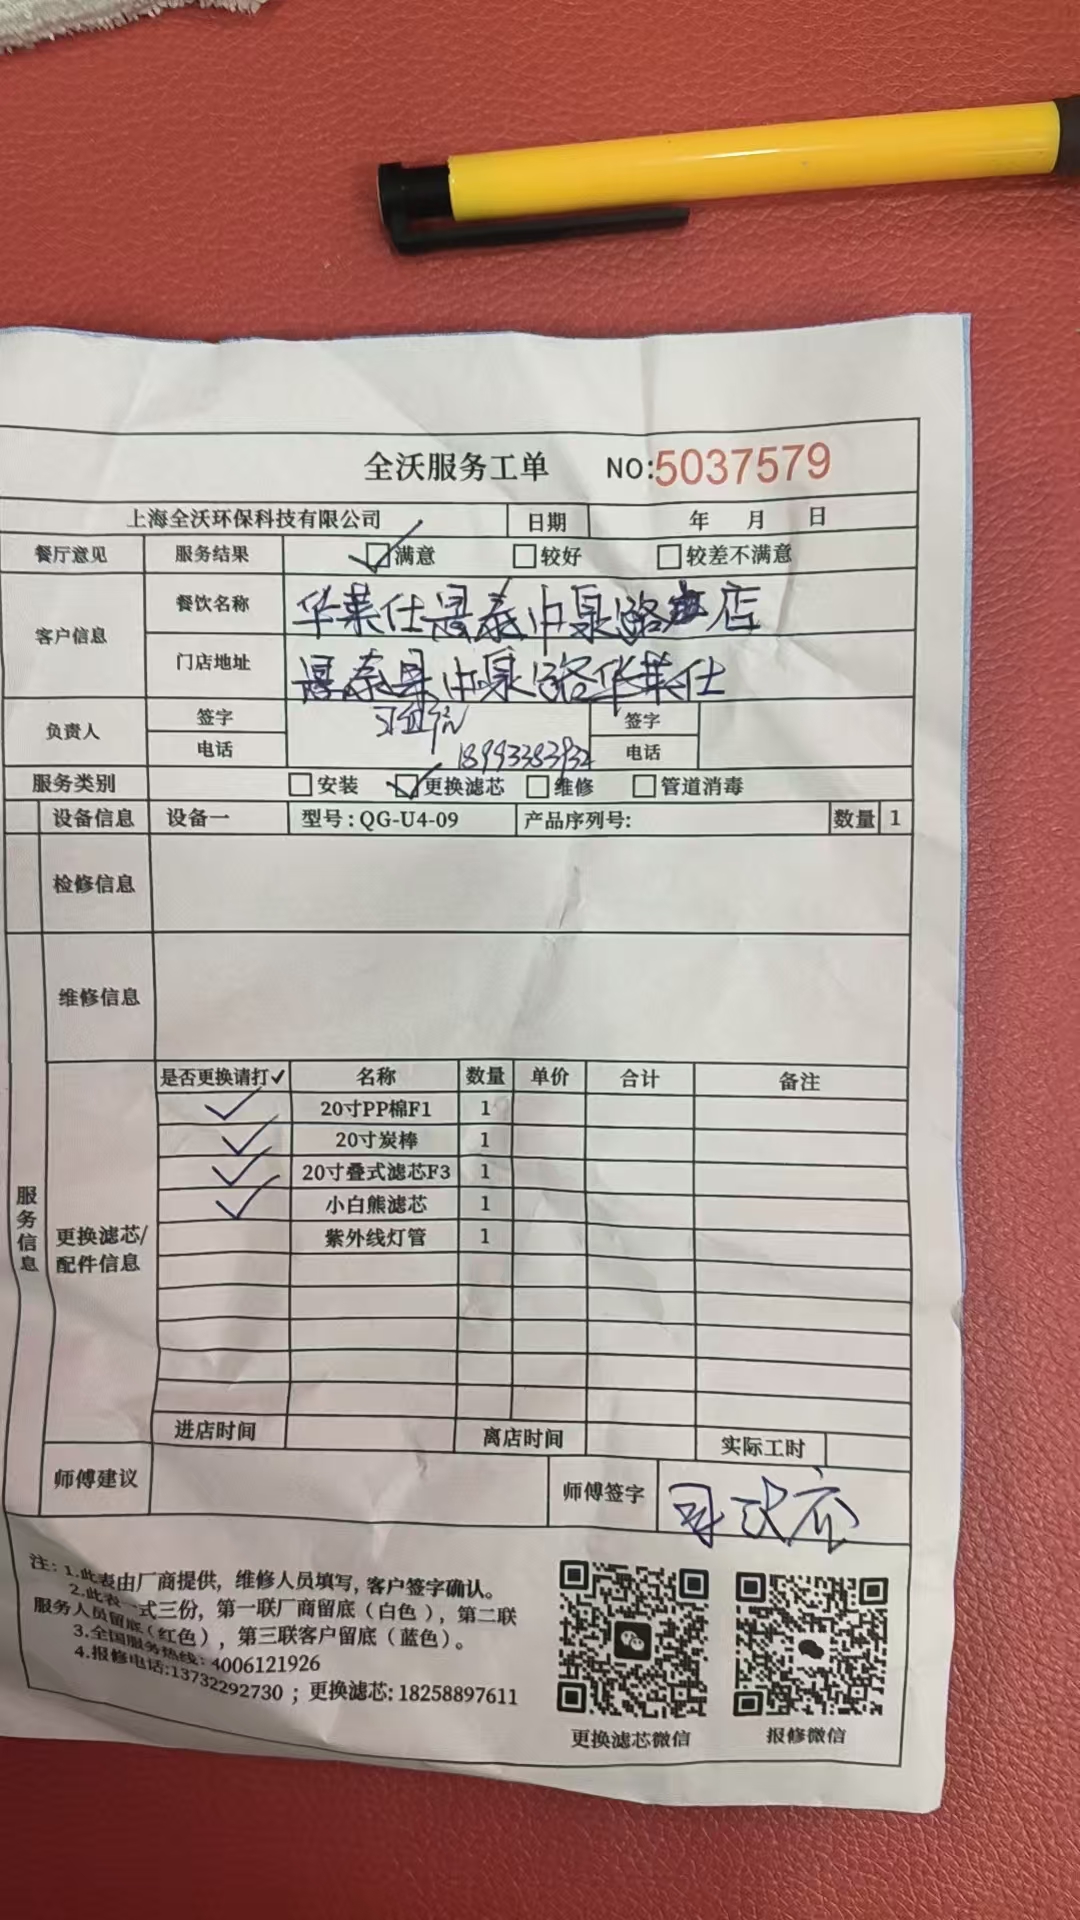 全沃服务工单 NO:5037579
上海全沃环保科技有限公司 日期 年 月 日
餐厅意见 服务结果 ✓满意 □较好 □较差不满意
客户信息 餐饮名称 华莱仕景泰中泉路店
门店地址 景泰县中泉路华莱仕
负责人 签字 签字
电话 电话
服务类别 □安装 ✓更换滤芯 □维修 □管道消毒
设备信息 设备一 型号:QG-U4-09 产品序列号: 数量 1
检修信息
维修信息
服务信息
更换滤芯/配件信息
是否更换请打✓ 名称 数量 单价 合计 备注
✓ 20寸PP棉F1 1
✓ 20寸炭棒 1
✓ 20寸叠式滤芯F3 1
✓ 小白熊滤芯 1
紫外线灯管 1
进店时间 离店时间 实际工时
师傅建议 师傅签字
注: 1.此表由厂商提供，维修人员填写，客户签字确认。
2.此表一式三份，第一联厂商留底（白色），第二联
服务人员留底（红色），第三联客户留底（蓝色）。
3.全国服务热线: 4006121926
4.报修电话:13732292730 ；更换滤芯: 18258897611
更换滤芯微信 报修微信